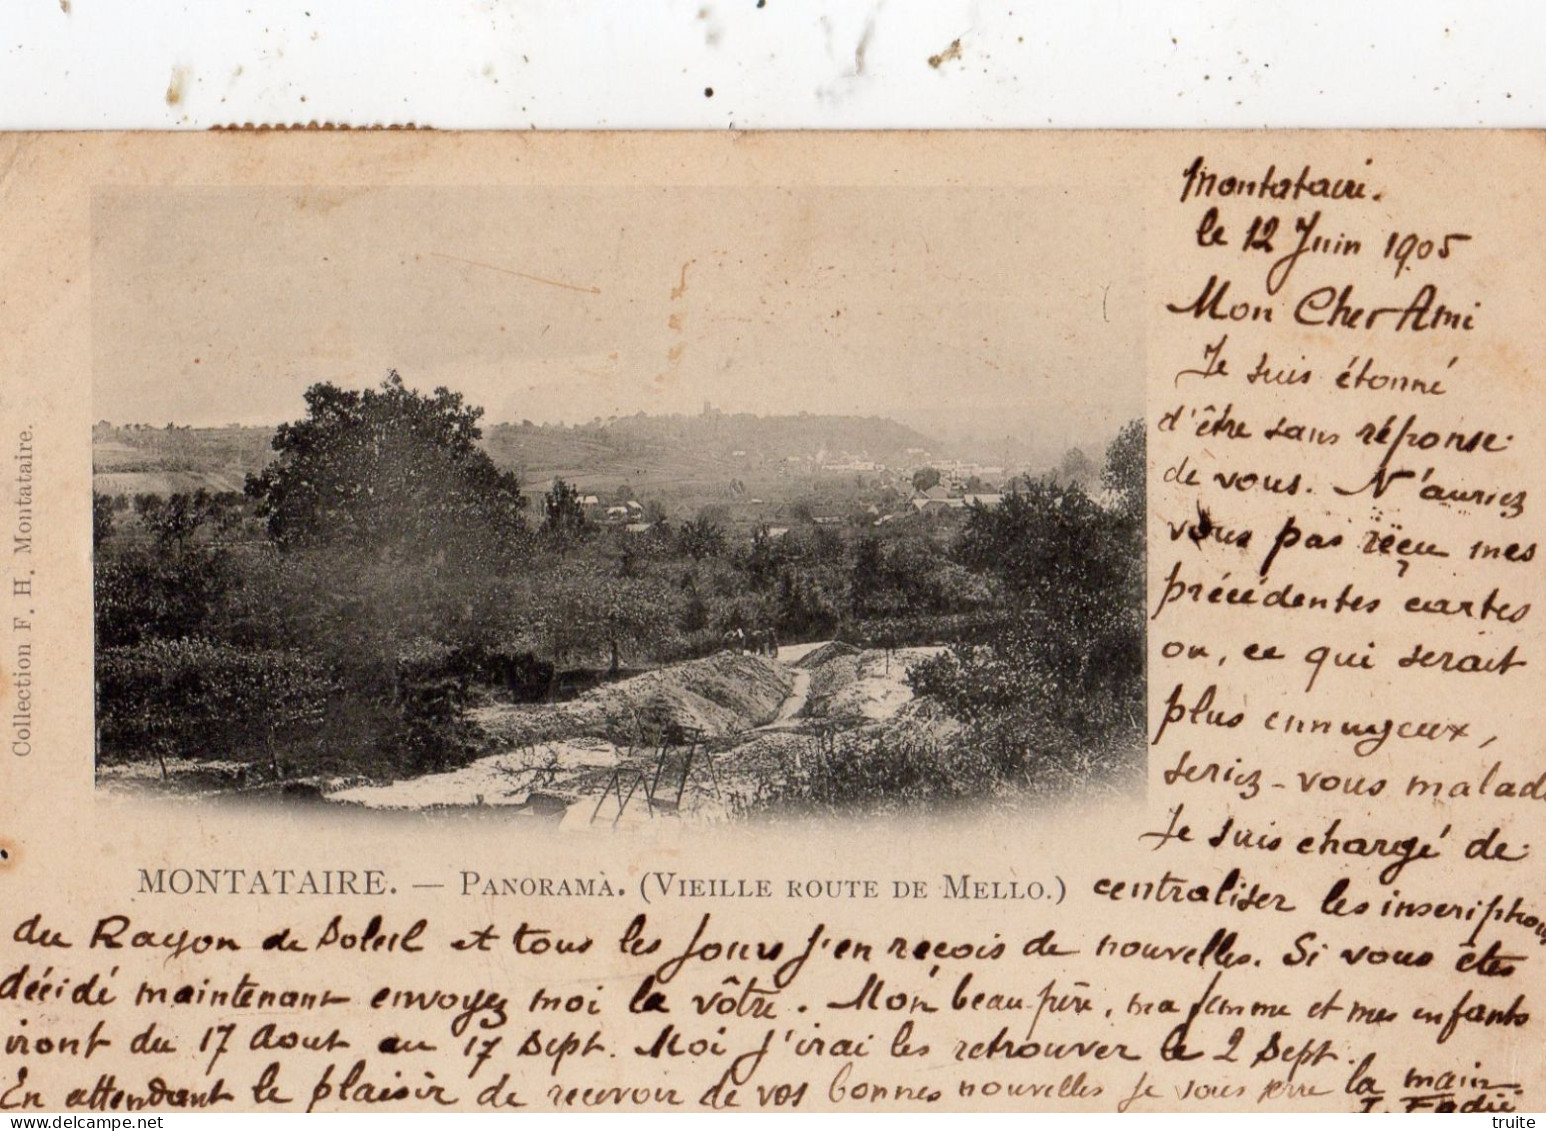 Montataire.
le 12 Juin 1905
Mon Cher Ami
Je suis étonné
d'être sans réponse
de vous. N'auriez
vous pas reçu mes
précédentes cartes
ou, ce qui serait
plus ennuyeux,
seriez-vous malade
Je suis chargé de
centraliser les inscriptions
du Rayon de Soleil et tous les jours j'en reçois de nouvelles. Si vous êtes
décidé maintenant envoyez moi la vôtre. Mon beau-père, ma femme et mes enfants
iront du 17 Aout au 17 Sept. Moi j'irai les retrouver le 2 Sept.
En attendant le plaisir de recevoir de vos bonnes nouvelles je vous serre la main
MONTATAIRE. — PANORAMA. (VIEILLE ROUTE DE MELLO.)
Collection F. H. Montataire.
delcampe.net
truite